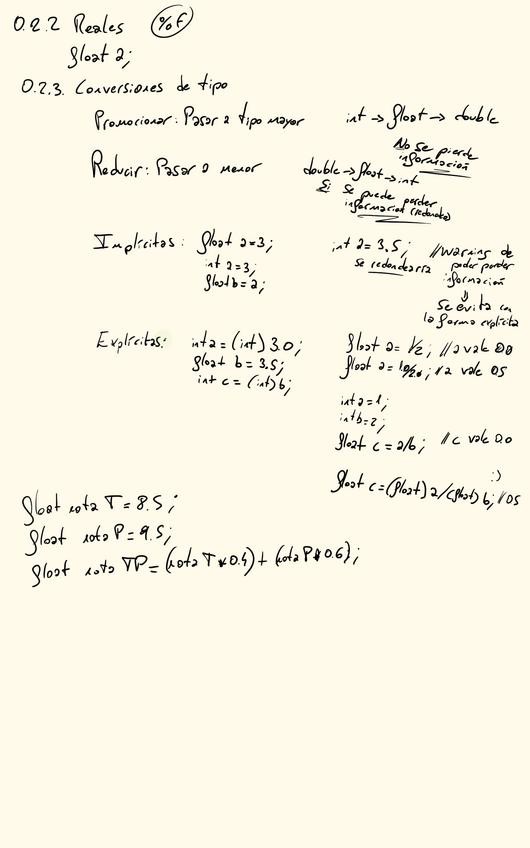 0.2.2 Reales %f
float a;
0.2.3. Conversiones de tipo
Promocionar: Pasar a tipo mayor int → float → double
No se pierde
información
Reducir: Pasar a menor double → float → int
Si se puede perder
información (redondeo)
Implícitas: float a=3;
int a=3;
float b=a;
int a=3.5; //warning de
poder perder
información
se redondearía
Se evita con
la forma explícita
Explícitas: int a=(int)3.0;
float b=3.5;
int c=(int)b;
float a=1/2; //a vale 0.0
float a=1.0/2.0; //a vale 0.5
int a=1;
int b=2;
float c=a/b; //c vale 0.0
:)
float c=(float)a/(float)b; //0.5
float nota T=8.5;
float nota P=9.5;
float nota TP=(nota T*0.4)+(nota P*0.6);